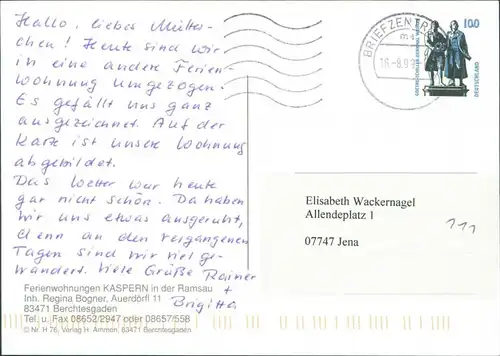 Hallo, liebes Mütter-
chen! Heute sind wir
in eine andere Ferien-
wohnung umgezogen.
Es gefällt uns ganz
ausgezeichnet. Auf der
Karte ist unsere Wohnung
abgebildet.
Das Wetter war heute
gar nicht schön. Da haben
wir uns etwas ausgeruht,
denn an den vergangenen
Tagen sind wir viel ge-
wandert. Viele Grüße Rainer
+
Brigitta
Ferienwohnungen KASPERN in der Ramsau
Inh. Regina Bogner, Auerdörfl 11
83471 Berchtesgaden
Tel. u. Fax 08652/2947 oder 08657/558
© Nr. H 76, Verlag H. Ammon, 83471 Berchtesgaden
BRIEFZENTR
16.-8.9
100
Elisabeth Wackernagel
Allendeplatz 1
07747 Jena
111